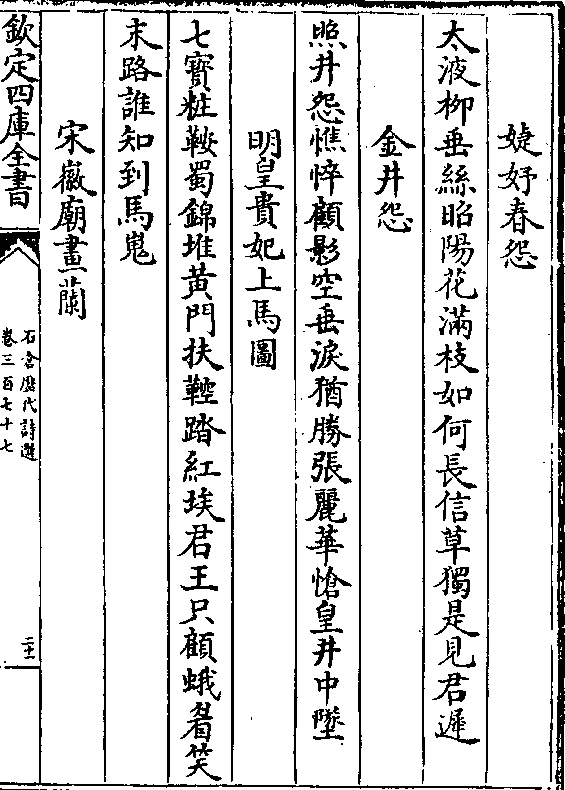 婕妤春怨
太液柳垂絲昭陽花滿枝如何長信草獨是見君遲
金井怨
照井怨憔悴顧影空垂淚猶勝張麗華愴皇井中墜
明皇貴妃上馬圖
七寶粧鞍蜀錦堆黃門扶鞚踏紅埃君王只顧蛾眉笑
末路誰知到馬嵬
宋徽廟畫蘭
欽定四庫全書
石倉歷代詩選
卷三百七十七
二十一